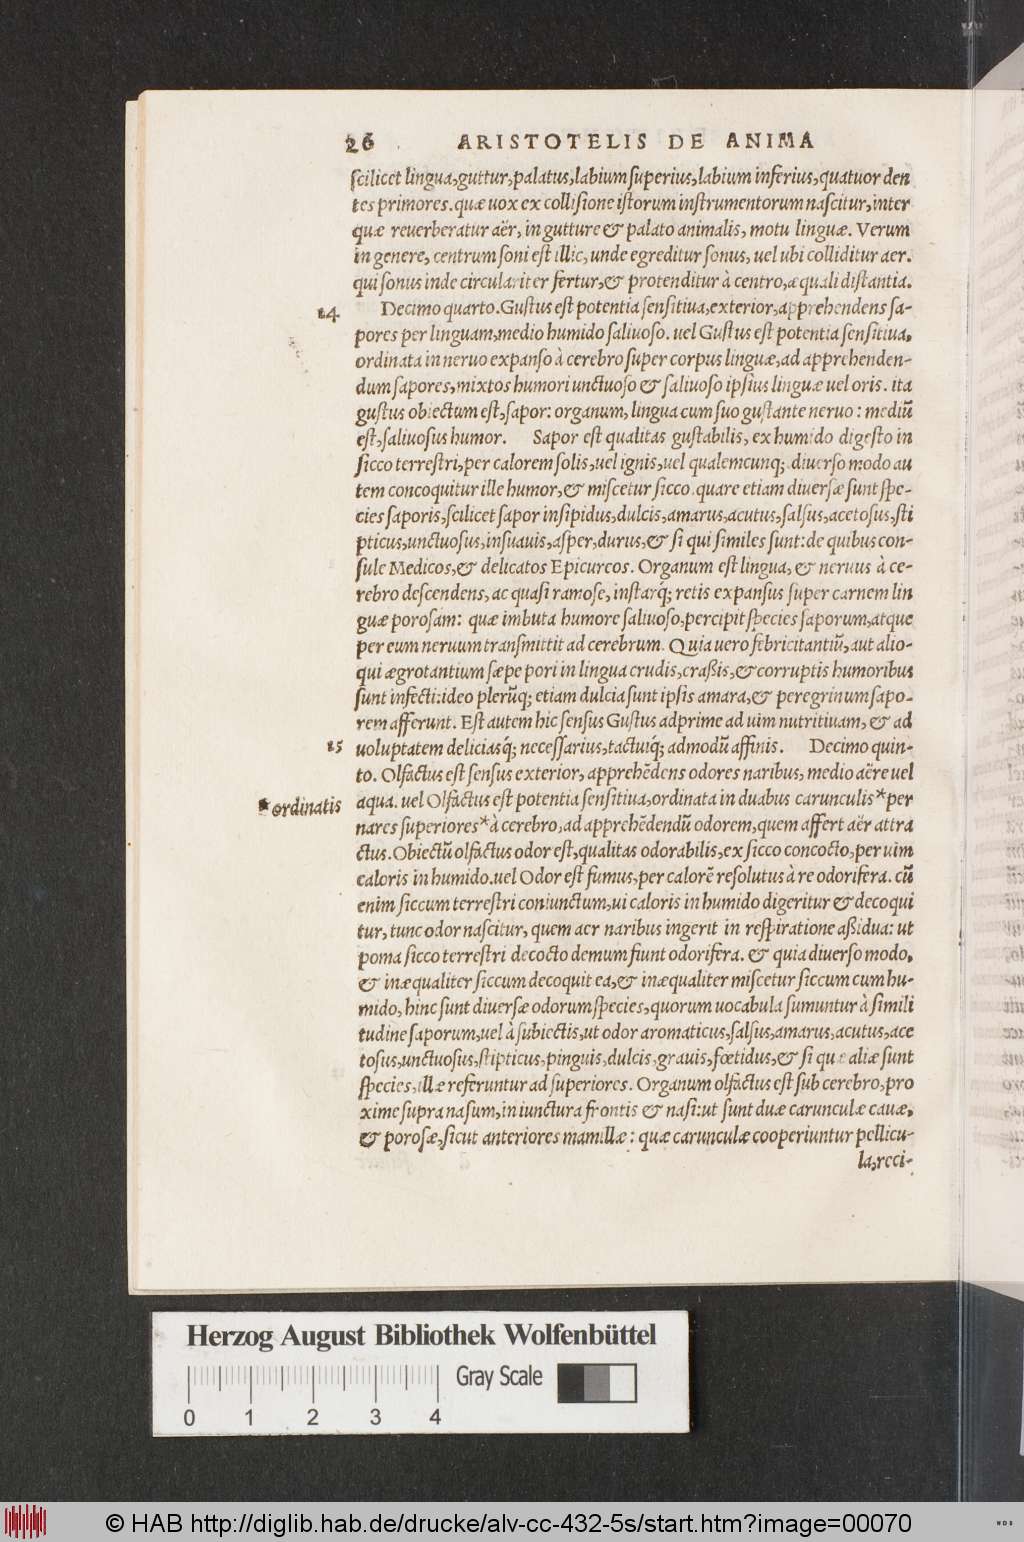 26 ARISTOTELIS DE ANIMA
scilicet lingua, guttur, palatus, labium superius, labium inferius, quatuor den
tes primores. quæ uox ex collisione istorum instrumentorum nascitur, inter
quæ reuerberatur aër, in gutture & palato animalis, motu linguæ. Verum
in genere, centrum soni est illic, unde egreditur sonus, uel ubi colliditur aer.
qui sonus inde circulariter fertur, & protenditur à centro, æquali distantia.
14 Decimo quarto. Gustus est potentia sensitiua, exterior, apprehendens sa-
pores per linguam, medio humido saliuoso. uel Gustus est potentia sensitiua,
ordinata in neruo expanso à cerebro super corpus linguæ, ad apprehenden-
dum sapores, mixtos humori unctuoso & saliuoso ipsius linguæ uel oris. ita
gustus obiectum est, sapor: organum, lingua cum suo gustante neruo: mediũ
est, saliuosus humor. Sapor est qualitas gustabilis, ex humido digesto in
sicco terrestri, per calorem solis, uel ignis, uel qualemcunq; diuerso modo au
tem concoquitur ille humor, & miscetur sicco. quare etiam diuersæ sunt spe-
cies saporis, scilicet sapor insipidus, dulcis, amarus, acutus, salsus, acetosus, sti
pticus, unctuosus, insuauis, asper, durus, & si qui similes sunt: de quibus con-
sule Medicos, & delicatos Epicureos. Organum est lingua, & neruus à ce-
rebro descendens, ac quasi ramose, instarq́; retis expansus super carnem lin
guæ porosam: quæ imbuta humore saliuoso, percipit species saporum, atque
per eum neruum transmittit ad cerebrum. Quia uero febricitantiũ, aut alio-
qui ægrotantium sæpe pori in lingua crudis, craßis, & corruptis humoribus
sunt infecti: ideo plerũq; etiam dulcia sunt ipsis amara, & peregrinum sapo-
rem afferunt. Est autem hic sensus Gustus adprime ad uim nutritiuam, & ad
15 uoluptatem deliciasq́; necessarius, tactuiq́; admodũ affinis. Decimo quin-
to. Olfactus est sensus exterior, apprehẽdens odores naribus, medio aëre uel
*ordinatis aqua. uel Olfactus est potentia sensitiua, ordinata in duabus carunculis*per
nares superiores*à cerebro, ad apprehẽdendũ odorem, quem affert aër attra
ctus. Obiectũ olfactus odor est, qualitas odorabilis, ex sicco concocto, per uim
caloris in humido. uel Odor est fumus, per calorẽ resolutus à re odorifera. cũ
enim siccum terrestri coniunctum, ui caloris in humido digeritur & decoqui
tur, tunc odor nascitur, quem aer naribus ingerit in respiratione aßidua: ut
poma sicco terrestri decocto demum fiunt odorifera. & quia diuerso modo,
& inæqualiter siccum decoquit ea, & inæqualiter miscetur siccum cum hu-
mido, hinc sunt diuersæ odorum species, quorum uocabula sumuntur à simili
tudine saporum, uel à subiectis, ut odor aromaticus, salsus, amarus, acutus, ace
tosus, unctuosus, stipticus, pinguis, dulcis, grauis, fœtidus, & si quæ aliæ sunt
species, illæ referuntur ad superiores. Organum olfactus est sub cerebro, pro
xime supra nasum, in iunctura frontis & nasi: ut sunt duæ carunculæ cauæ,
& porosæ, sicut anteriores mamillæ: quæ carunculæ cooperiuntur pellicu-
la, reci-
Herzog August Bibliothek Wolfenbüttel
Gray Scale
0 1 2 3 4
© HAB http://diglib.hab.de/drucke/alv-cc-432-5s/start.htm?image=00070